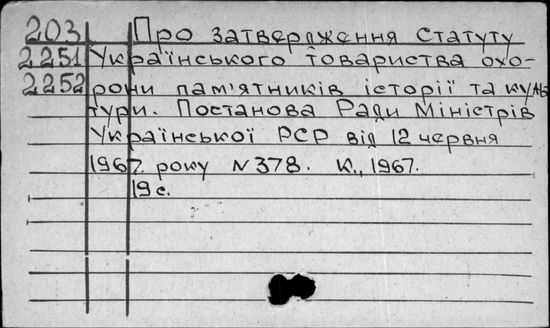 203 Про затвердження Статуту
2251 Українського товариства охо-
2252 рони пам'ятників історії та куль
тури. Постанова Ради Міністрів
Української РСР від 12 червня
1967 року N 378. К., 1967.
19 с.